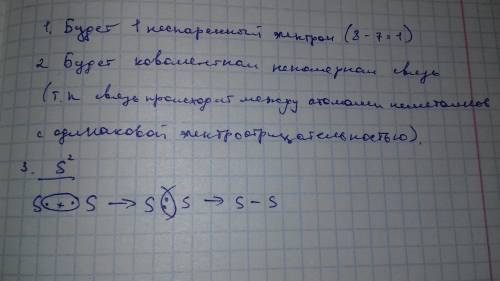 1. Будет 1 неспаренный электрон (8-7=1)
2 Будет ковалентная неполярная связь
(т.к связь происходит между атомами неметаллов
с одинаковой электроотрицательностью).
3. S²
S·+·S → S:S → S-S